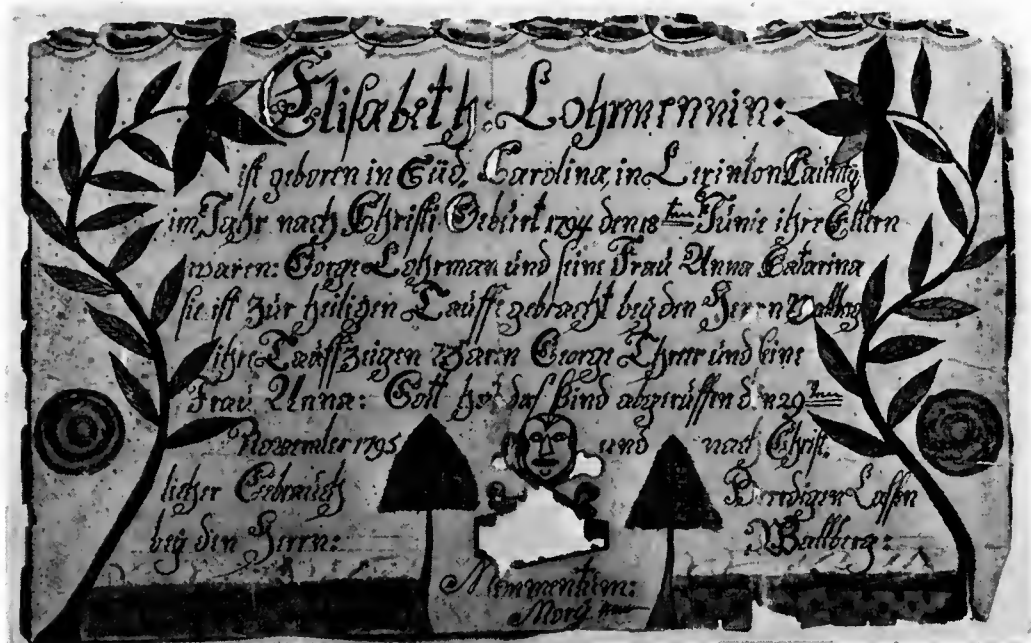 Elisabeth: Lohrmennin:
ist geboren in Süd, Carolina, in Lexinton
im Jahr nach Christi Gebürt 1794 den 18ten Junie ihre Eltern
waren: Gorge Lohrman und seine Frau Anna Catarina
sie ist zur heiligen Tauffe gebracht bey den Herrn Wallberg
ihre Tauffzeigen waren George und seine
Frau Anna: Gott hat das Kind abgerüffen den 29ten
November 1795 und nach Christ:
licher Gebrauch Beerdigen Lassen
bey den Herrn: Wallberg:
Memmentum:
Mory